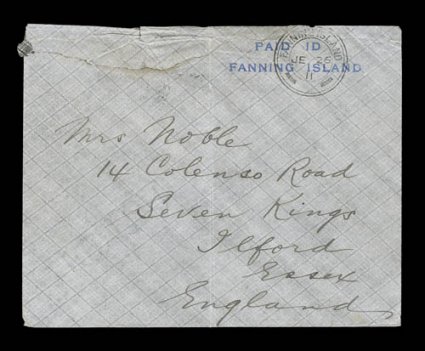 PAID 1D
FANNING ISLAND
FANNING ISLAND
JE 26
11
Mrs Noble
14 Colenso Road
Seven Kings
Ilford
Essex
England